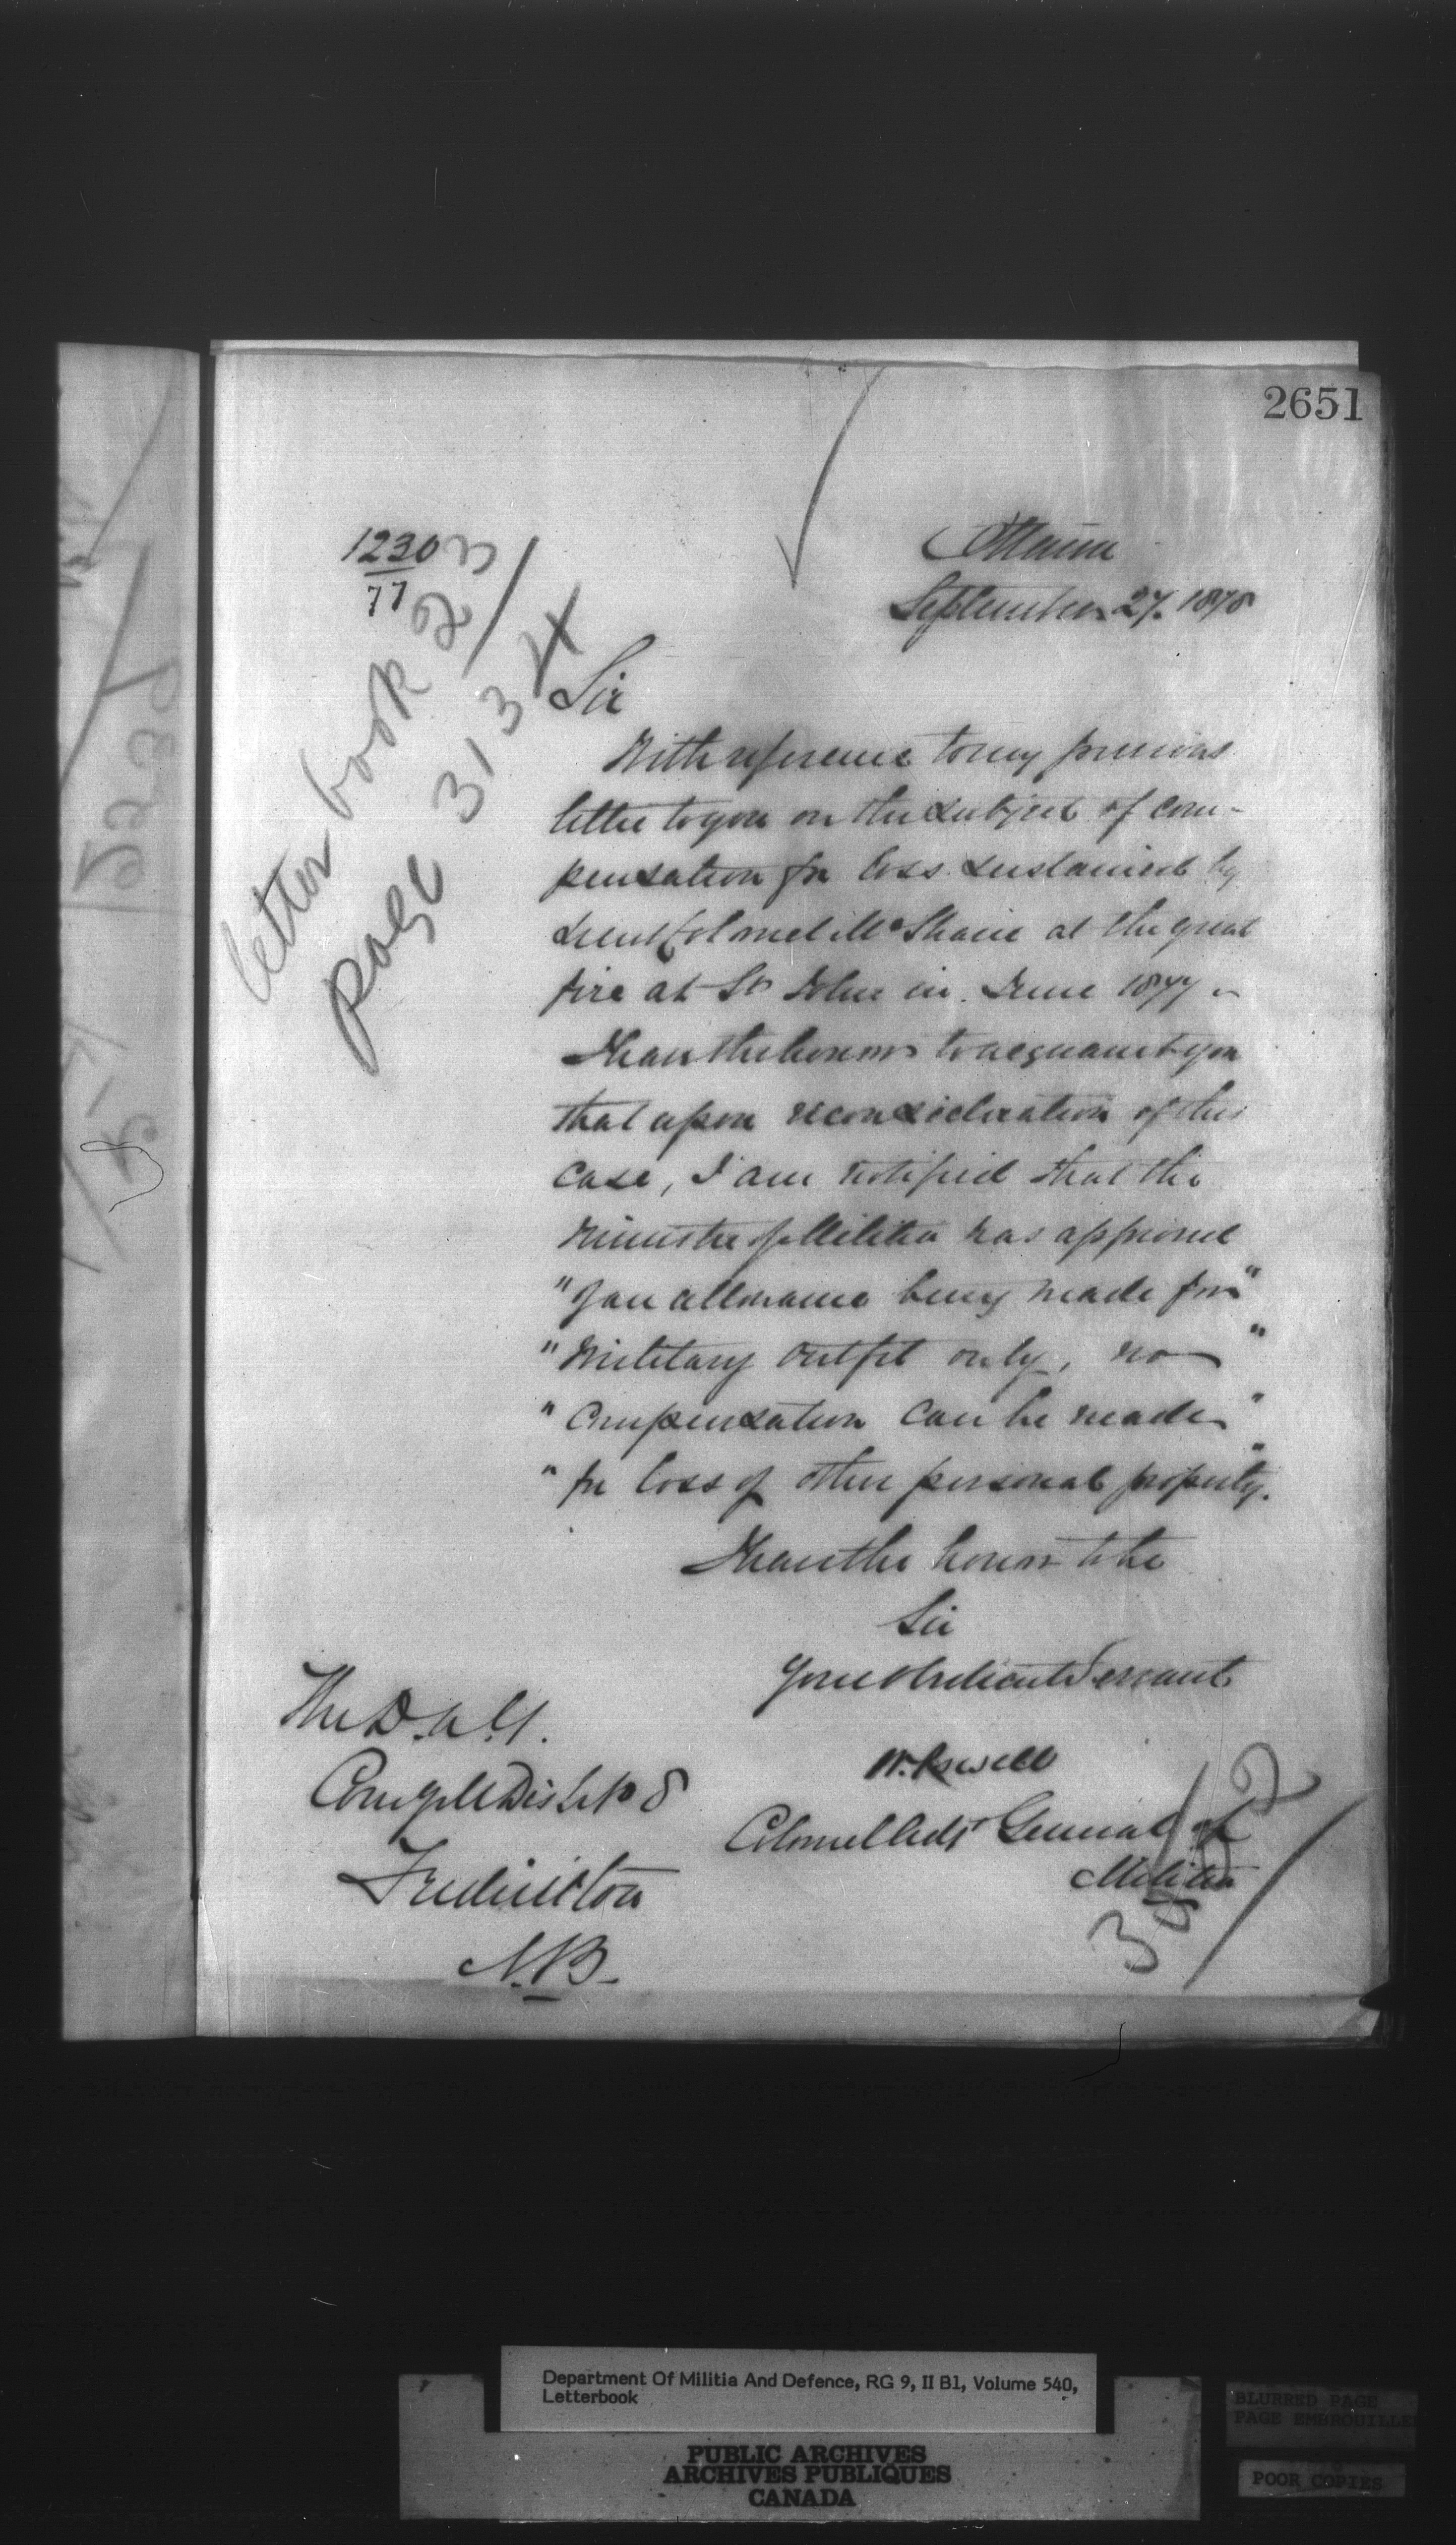 2651
12303
77
letter book 23
page 3134
Ottawa
September 27. 1878
Sir
With reference to my previous
letter to you on the subject of com-
pensation for loss sustained by
Lieut Colonel McShane at the great
fire at St John in June 1877 -
I have the honor to acquaint you
that upon reconsideration of this
case, I am notified that the
Minister of Militia has approved
"of an allowance being made for"
"Military outfit only, no"
"Compensation can be made"
"for loss of other personal property."
I have the honor to be
Sir
Your Obedient Servant
W. Powell
Colonel Adjt General of
Militia
The D.A.G.
Comg Mil Dist No 8
Fredericton
N.B.
Department Of Militia And Defence, RG 9, II B1, Volume 540,
Letterbook
PUBLIC ARCHIVES
ARCHIVES PUBLIQUES
CANADA
BLURRED PAGE
PAGE EMBROUILLEE
POOR COPIES